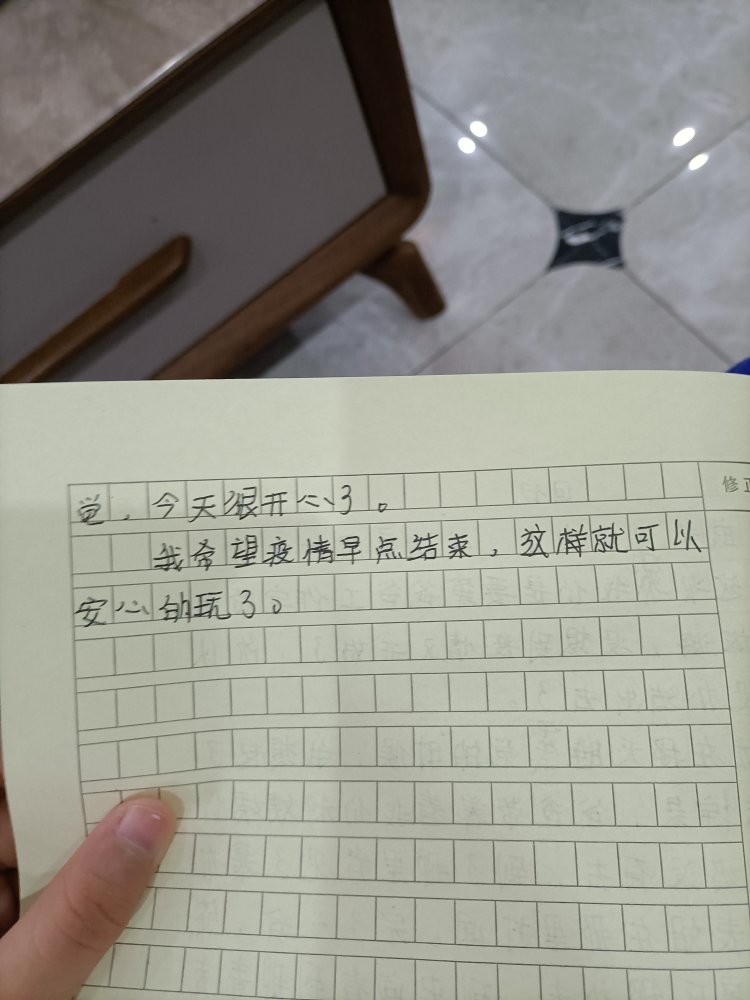 觉，今天很开心了。
我希望疫情早点结束，这样就可以
安心的玩了。
修正